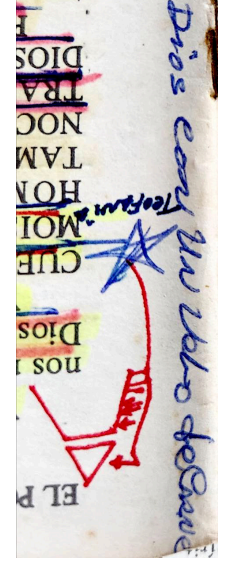 Dios con Un Velo de Carne
Teofanía
EL P
nos
Dios
CUE
MOI
HOM
TAM
NOC
TRA
DIOS